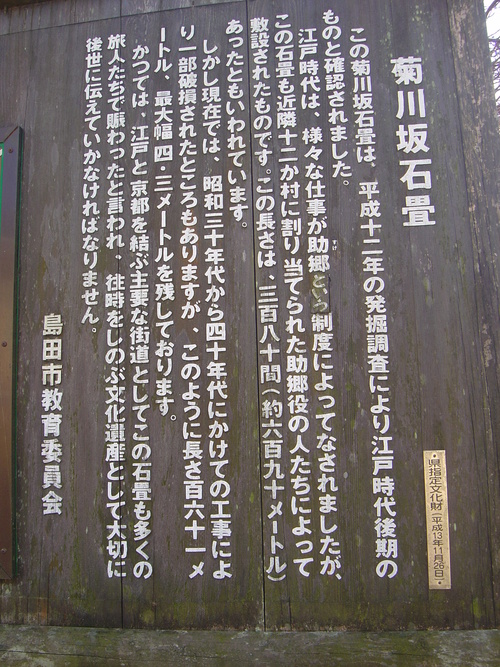 菊川坂石畳
県指定文化財(平成13年11月26日)
この菊川坂石畳は、平成十二年の発掘調査により江戸時代後期の
ものと確認されました。
江戸時代は、様々な仕事が助郷という制度によってなされましたが、
この石畳も近隣十二か村に割り当てられた助郷役の人たちによって
敷設されたものです。この長さは、三百八十間(約六百九十メートル)
あったともいわれています。
しかし現在では、昭和三十年代から四十年代にかけての工事によ
り一部破損されたところもありますが、このように長さ百六十一メ
ートル、最大幅四・三メートルを残しております。
かつては、江戸と京都を結ぶ主要な街道としてこの石畳も多くの
旅人たちで賑わったと言われ、往時をしのぶ文化遺産として大切に
後世に伝えていかなければなりません。
島田市教育委員会